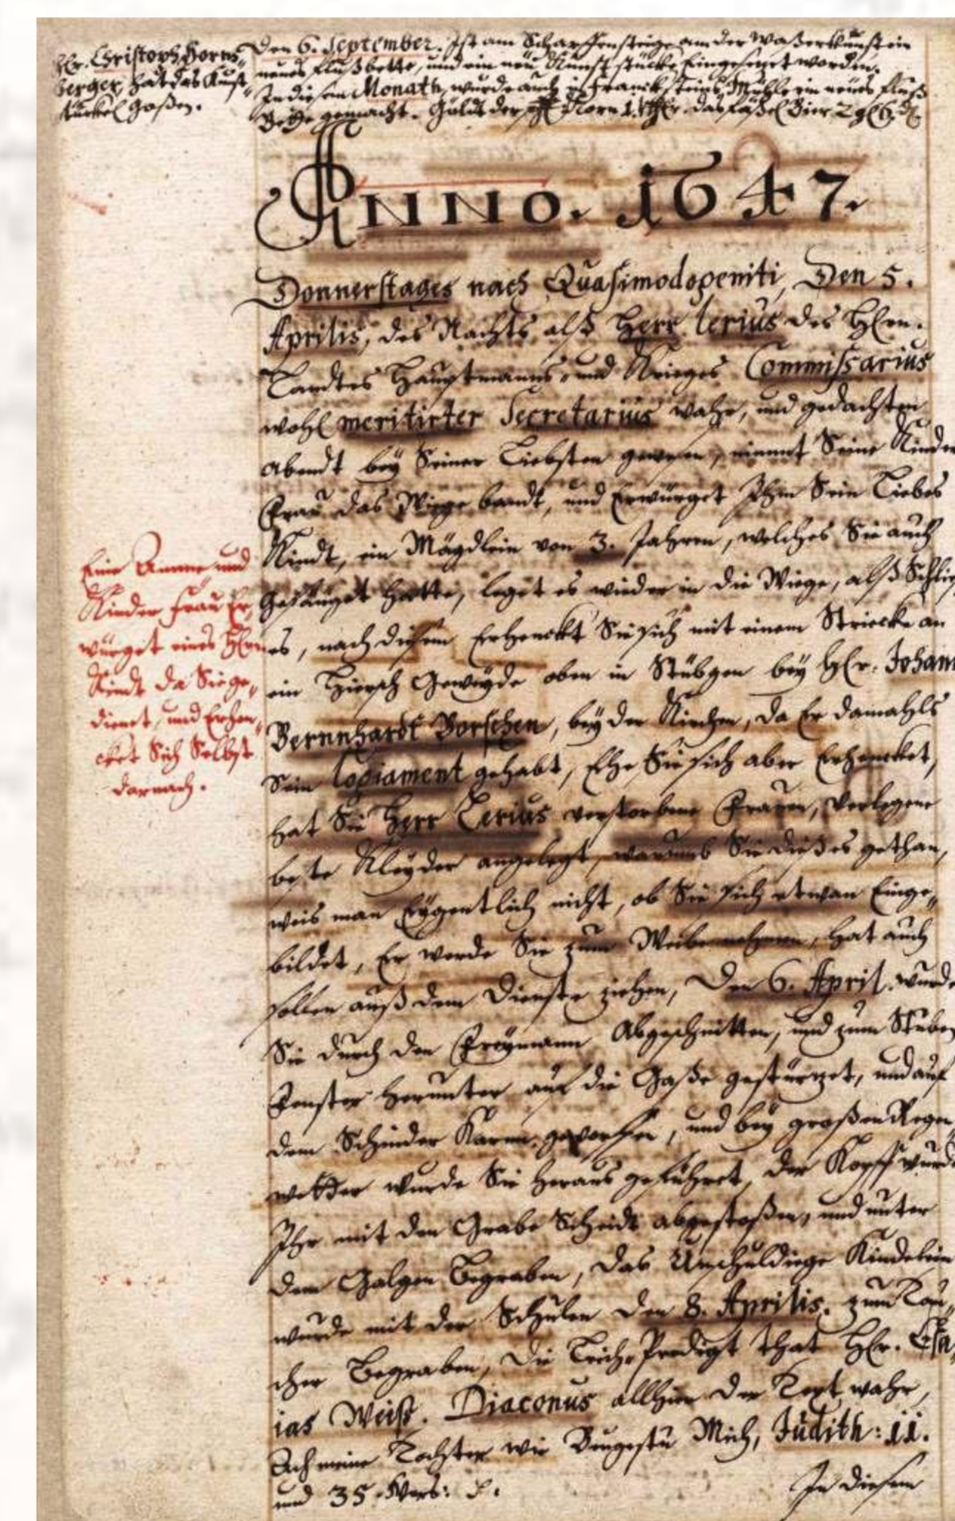 Hr. Christoph Horns-
berger, hat das Kunst-
Kürbel goßen.
Den 6. September. Ist am Scharffensteige an der Waßerkunst ein
neues Flußbette, und ein neu Kunst stücke Eingesetzet worden.
In diesem Monath, wurde auch in Franckensteins Mühle ein neües Fluß
Bette gemacht. Gulte der Korn 1. das faßel Bier
ANNO. 1647.
Donnerstages nach Quasimodogeniti, Den 5.
Aprilis, des Nachts alß Herr Cerius des Hern.
Landtes Hauptmanns und Krieges Commissarius
wohl meritirter Secretarius wahr, und gedachten
Abendt bey Seiner Liebsten gewesen, nimmt Seine Kinder
Frau das Wiege bandt, und Erwürget Ihm Sein Liebes
Kindt, ein Mägdlein von 3. Jahren, welches Sie auch
Gesäuget hatte, leget es wieder in die Wiege, alß Schlieff
es, nach diesem Erhenckt Sie sich mit einem Stricke an
ein Hirsch Geweyde oben in Stübgen bey Hr. Johann
Bernnhardt Borschen, bey der Kirchen, da Er damahls
Sein logiament gehabt, Ehe Sie sich aber Erhencket,
hat Sie Herr Cerius verstorbene Frauen, verlegene
beste Kleyder angelegt, warumb Sie dießes gethan,
weis man Eygentlich nicht, ob Sie sich etwan Einge-
bildet, Er werde Sie zum Weibe nehmen, hat auch
sollen auß dem Dienste ziehen, Den 6. April. wurde
Sie durch den Freymann Abgeschnitten, und zum Stuben
Fenster herunter auf die Gaße gestürtzet, und auf
den Schinder Karrn geworffen, und bey großen Regen
wetter wurde Sie heraus geführet, der Kopff wurde
Ihr mit den Grabe Scheidt abgestoßen, und unter
dem Galgen Begraben, Das Unschuldiege Kindelein
wurde mit der Schulen den 8. Aprilis. zum Tau-
cher Begraben, Die Leich Predigt that Hr. Esa-
ias Weiß. Diaconus allhier der Text wahr,
Ach meine Tochter wie Beugestu Mich, Judith: 11.
und 35 Vers: 
In diesem
Eine Amme und
Kinder Frau Er-
würget eines Hern
Kindt da Sie ge-
dienet, und Erhen-
cket Sich Selbst
darnach.